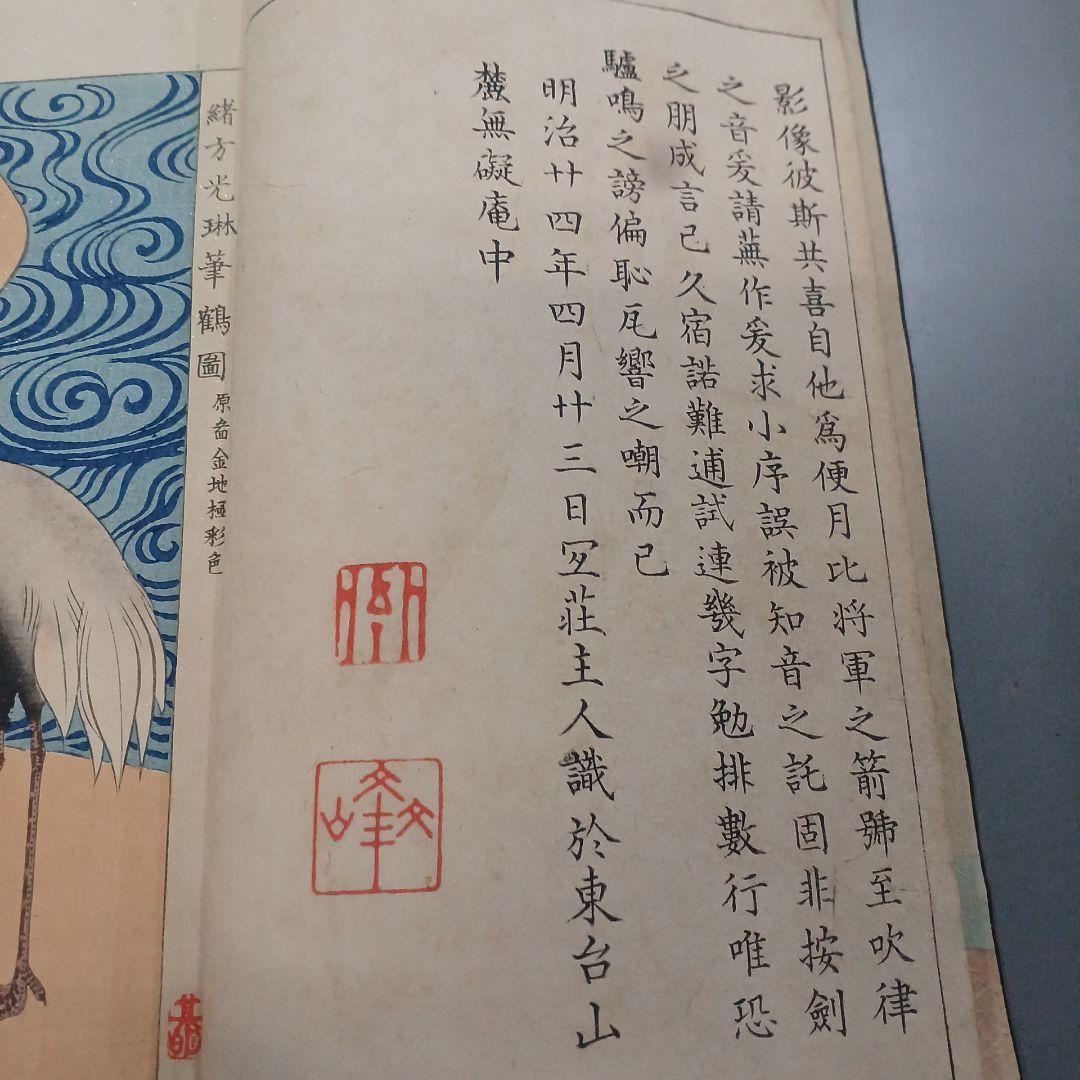 影像彼斯共喜自他爲便月比将軍之箭號至吹律
之音爰請蕪作爰求小序誤被知音之託固非按劍
之朋成言已久宿諾難逋試連幾字勉排數行唯恐
驢鳴之謗偏恥瓦響之嘲而已
明治廿四年四月廿三日 莊主人識於東台山
麓無礙庵中
緒方光琳筆鶴圖
原畵金地極彩色